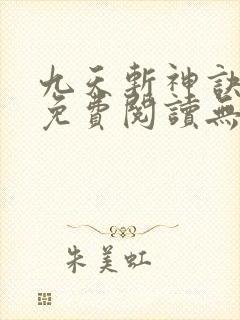 九天斬神訣
免費閱讀無
朱美虹